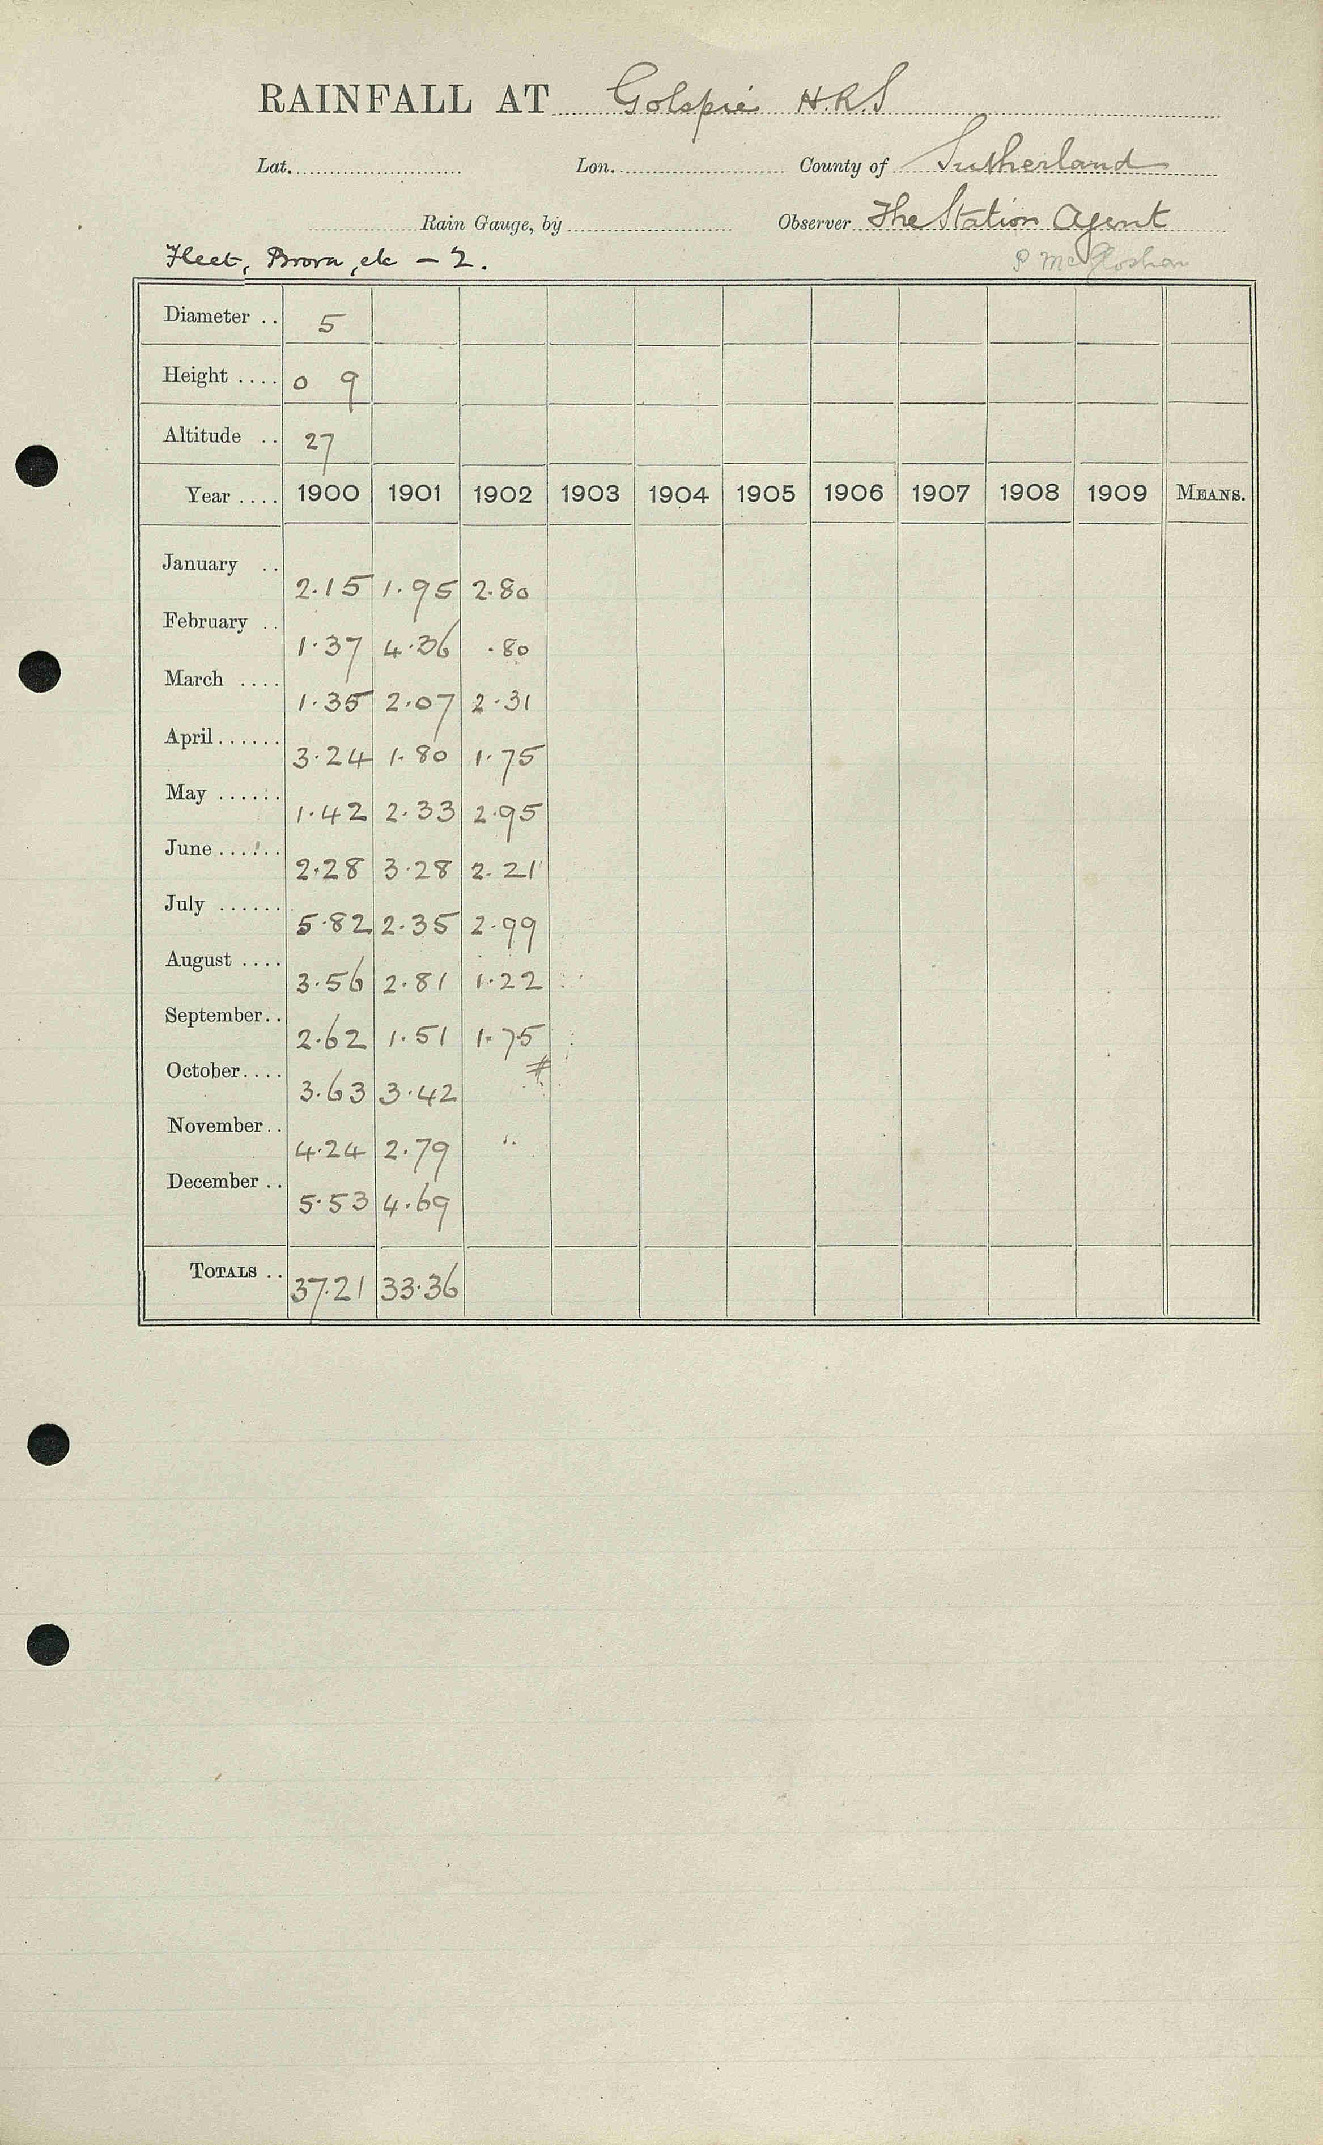 RAINFALL AT Golspie H.R.S
Lat. Lon. County of Sutherland
Rain Gauge, by Observer The Station Agent
Fleet, Brora, etc - 2.
Diameter .. 5
Height .... 0 9
Altitude .. 27
Year .... 1900 1901 1902 1903 1904 1905 1906 1907 1908 1909 MEANS.
January .. 2.15 1.95 2.80
February .. 1.37 4.36 .80
March .... 1.35 2.07 2.31
April...... 3.24 1.80 1.75
May ...... 1.42 2.33 2.95
June...... 2.28 3.28 2.21
July ...... 5.82 2.35 2.99
August .... 3.56 2.81 1.22
September.. 2.62 1.51 1.75
October.... 3.63 3.42 #
November.. 4.24 2.79
December .. 5.53 4.69
TOTALS .. 37.21 33.36